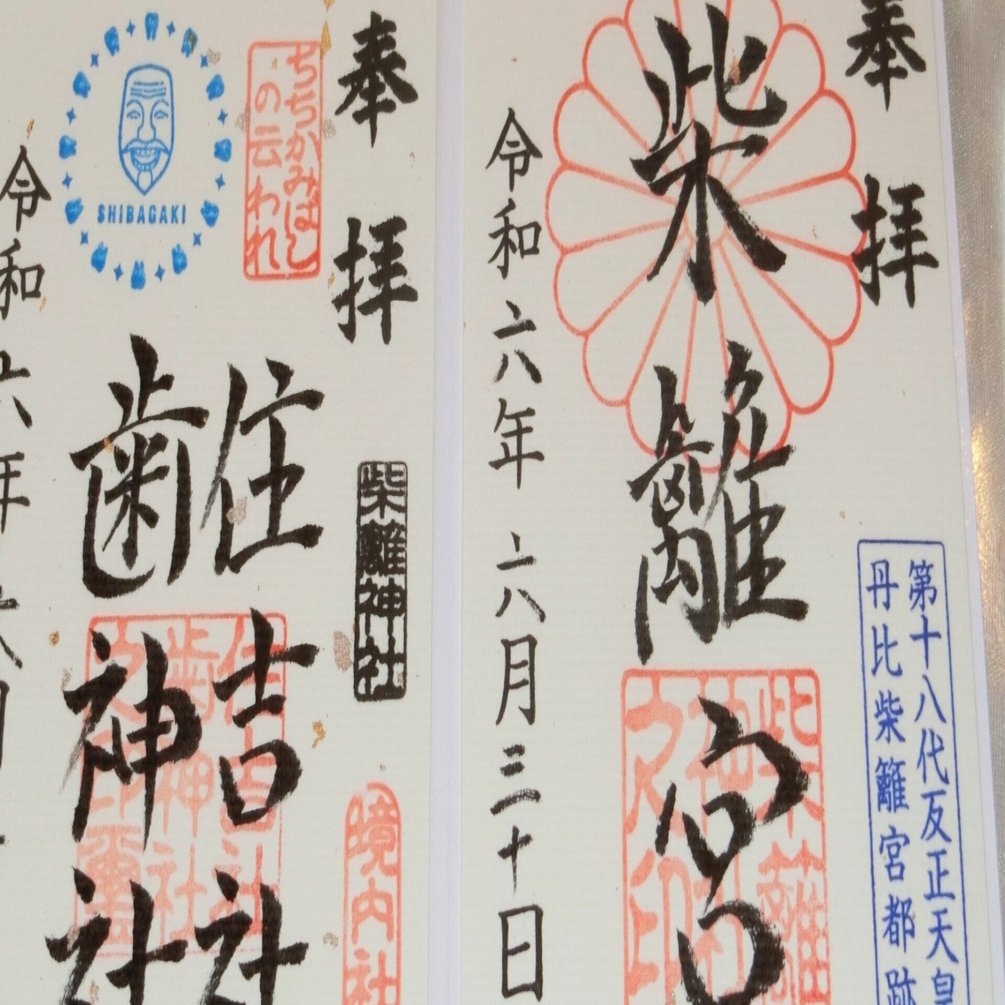 奉拝
柴籬宮
令和六年六月三十日
第十八代反正天皇
丹比柴籬宮都跡
奉拝
住吉社
歯神社
令和六年六月
柴籬神社
境内社
ちちかみばし
の云われ
SHIBAGAKI